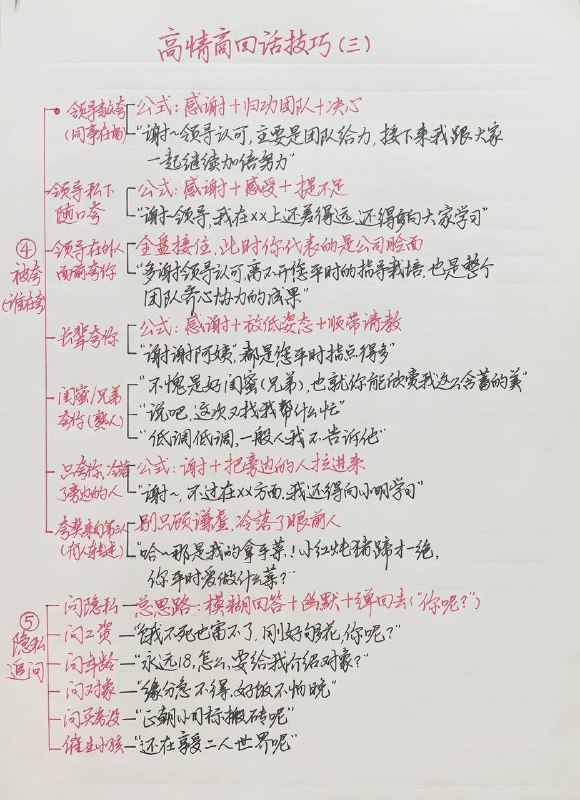 高情商回话技巧(三)
④
被夸
(谁在夸)
领导敲夸
(同事在场)
公式:感谢+归功团队+决心
"谢~领导认可,主要是团队给力,接下来我跟大家
一起继续加倍努力"
领导私下
随口夸
公式:感谢+感受+提不足
"谢~领导,我在××上还差得远,还得多向大家学习"
领导在外人
面前夸你
全盘接住,此时你代表的是公司脸面
"多谢领导认可,离不开您平时的指导栽培,也是整个
团队齐心协力的成果"
长辈夸你
公式:感谢+放低姿态+顺带请教
"谢谢阿姨,都是您平时指点得多"
闺蜜/兄弟
夸你(熟人)
"不愧是好闺蜜(兄弟),也就你能欣赏我这么含蓄的美"
"说吧,这次又找我帮什么忙"
"低调低调,一般人我不告诉他"
只夸你,冷落
了旁边的人
公式:谢+把旁边的人拉进来
"谢~,不过在××方面,我还得向小明学习"
夸奖来自第三人
(有人转述)
别只顾谦虚,冷落了眼前人
"哈~那是我的拿手菜!小红炖猪蹄才一绝,
你平时爱做什么菜?"
⑤
隐私
追问
问隐私
总思路:模糊回答+幽默+弹回去("你呢?")
问工资
"饿不死也富不了,刚好够花,你呢?"
问年龄
"永远18,怎么,要给我介绍对象?"
问对象
"缘分急不得,好饭不怕晚"
问买房没
"正朝小目标搬砖呢"
催生小孩
"还在享受二人世界呢"